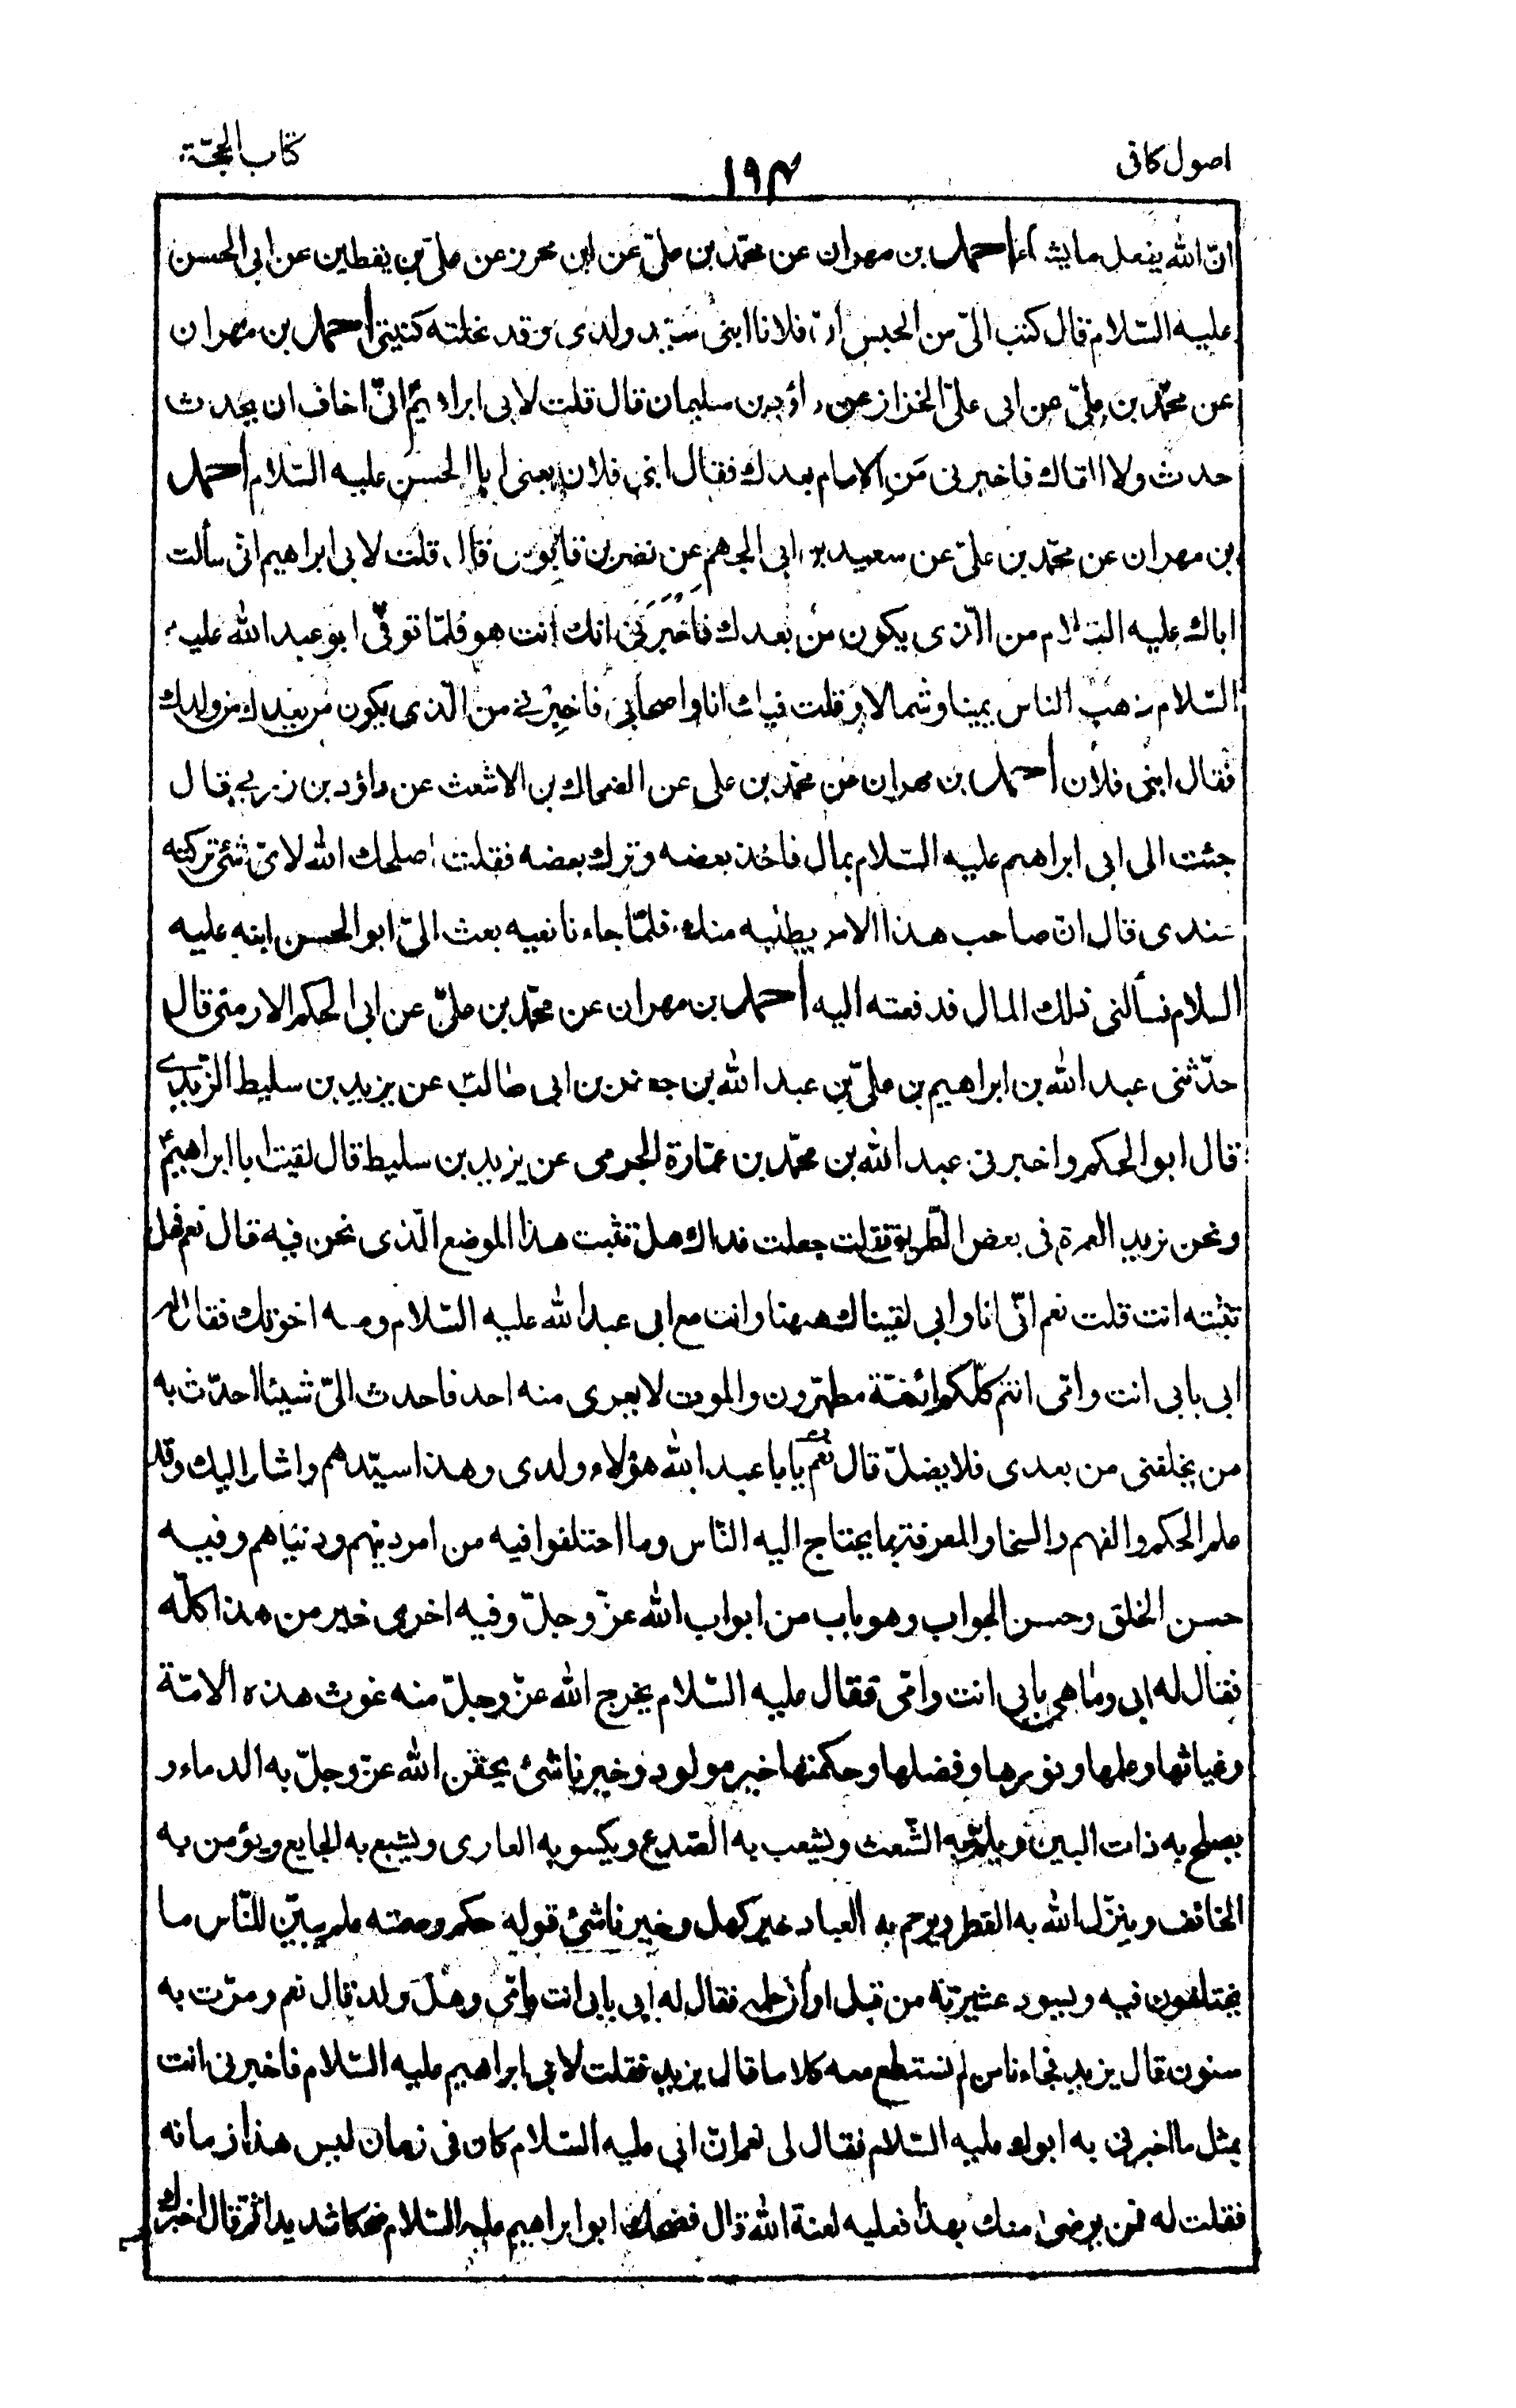 اصول كافى
١٩٤
كتاب الحجّة
انّ الله يفعل ما يشاء احمد بن مهران عن محمّد بن علىّ عن ابن محرز عن علىّ بن يقطين عن ابى الحسن
عليه السّلام قال كتب الىّ من الحبس انّ فلانا ابنى سيّد ولدى وقد نحلته كنيتى احمد بن مهران
عن محمّد بن علىّ عن ابى علىّ الخزاز عن داؤد بن سليمان قال قلت لابى ابراهيمؑ انّى اخاف ان يحدث
حدث ولا القاك فاخبرنى مَنِ الامام بعدك فقال ابنى فلان يعنى ابا الحسن عليه السّلام احمد
بن مهران عن محمّد بن علىّ عن سعيد بن ابى الجهم عن نضر بن قابوس قال قلت لابى ابراهيم انّى سألت
اباك عليه السّلام من الّذى يكون من بعدك فاخبرنى انك انت هو فلمّا توفّى ابو عبد الله عليه
السّلام ذهب الناس يمينا وشمالا وقلت فيك انا واصحابى فاخبرنى من الّذى يكون من بعدك من ولدك
فقال ابنى فلان احمد بن مهران عن محمّد بن على عن الضحاك بن الاشعث عن داؤد بن زربى قال
جئت الى ابى ابراهيم عليه السّلام بمال فاخذ بعضه وترك بعضه فقلت اصلحك الله لاىّ شئ تركته
عندى قال انّ صاحب هذا الامر يطلبه منك فلمّا جاءنا نعيه بعث الىّ ابو الحسن ابنه عليه
السلام فسألنى ذلك المال فدفعته اليه احمد بن مهران عن محمّد بن علىّ عن ابى الحكم الارمنى قال
حدّثنى عبد الله بن ابراهيم بن علىّ بن عبد الله بن جعفر بن ابى طالب عن يزيد بن سليط الزّيدى
قال ابو الحكم واخبرنى عبد الله بن محمّد بن عمّارة الجرمى عن يزيد بن سليط قال لقيت ابا ابراهيمؑ
ونحن نريد العمرة فى بعض الطّريق فقلت جعلت فداك هل تثبت هذا الموضع الّذى نحن فيه قال نعم فهل
تثبته انت قلت نعم انّى انا وابى لقيناك ههنا وانت مع ابى عبد الله عليه السّلام ومعه اخوتك فقال له
ابى بابى انت وامّى انتم كلّكم ائمّة مطهّرون والموت لا يعرى منه احد فاحدث الىّ شيئا احدّث به
من يخلفنى من بعدى فلا يضلّ قال نعم يابا عبد الله هؤلاء ولدى وهذا سيّدهم واشار اليك وقد
علم الحكم والفهم والسخا والمعرفة بما يحتاج اليه النّاس وما اختلفوا فيه من امر دينهم ودنياهم وفيه
حسن الخلق وحسن الجواب وهو باب من ابواب الله عزّ وجلّ وفيه اخرى خير من هذا كلّه
فقال له ابى وما هى بابى انت وامّى فقال عليه السّلام يخرج الله عزّ وجلّ منه غوث هذه الامّة
وغياثها وعلمها ونورها وفضلها وحكمتها خير مولود وخير ناشئ يحقن الله عزّ وجلّ به الدماء و
يصلح به ذات البين ويلمّ به الشّعث ويشعب به الصّدع ويكسو به العارى ويشبع به الجايع ويؤمن به
الخائف وينزّل الله به القطر ويرحم به العباد خير كهل وخير ناشئ قوله حكم وصمته علم يبيّن للنّاس ما
يختلفون فيه ويسود عشيرته من قبل اوان حلمه فقال له ابى بابى انت وامّى وهل ولد قال نعم ومرّت به
سنون قال يزيد فجاءنا من لم نستطع معه كلاما قال يزيد فقلت لابى ابراهيم عليه السّلام فاخبرنى انت
بمثل ما اخبرنى به ابوك عليه السّلام فقال لى نعم انّ ابى عليه السّلام كان فى زمان ليس هذا زمانه
فقلت له فمن يرضى منك بهذا فعليه لعنة الله قال فضحك ابو ابراهيم عليه السّلام ضحكا شديدا ثمّ قال اخبرك